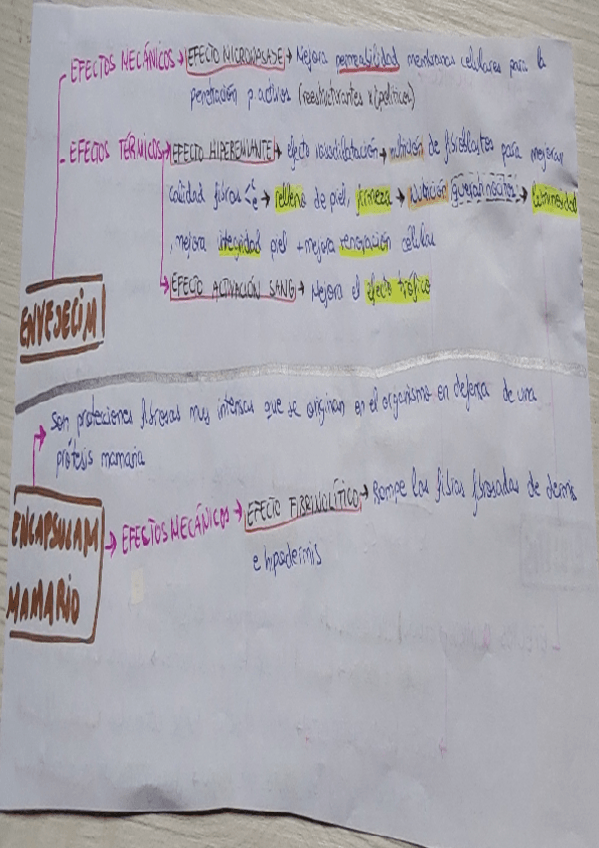 EFECTOS MECÁNICOS → EFECTO MICROMASAJE → Mejora permeabilidad membranas celulares para la
penetración p. activos (reestructurantes x lipolíticos)
EFECTOS TÉRMICOS → EFECTO HIPEREMIANTE → efecto vasodilatación → nutrición de fibroblastos para mejorar
calidad fibras → relleno de piel, firmeza → nutrición queratinocitos → luminosidad
, mejora integridad piel + mejora renovación celular
EFECTO ACTIVACIÓN SANG → Mejora el efecto trófico
ENVEJECIM
Son protecciones fibrosas muy intensas que se originan en el organismo en defensa de una
prótesis mamaria
ENCAPSULAM
MAMARIO
→ EFECTOS MECÁNICOS → EFECTO FIBRINOLÍTICO → Rompe las fibras fibrosadas de dermis
e hipodermis